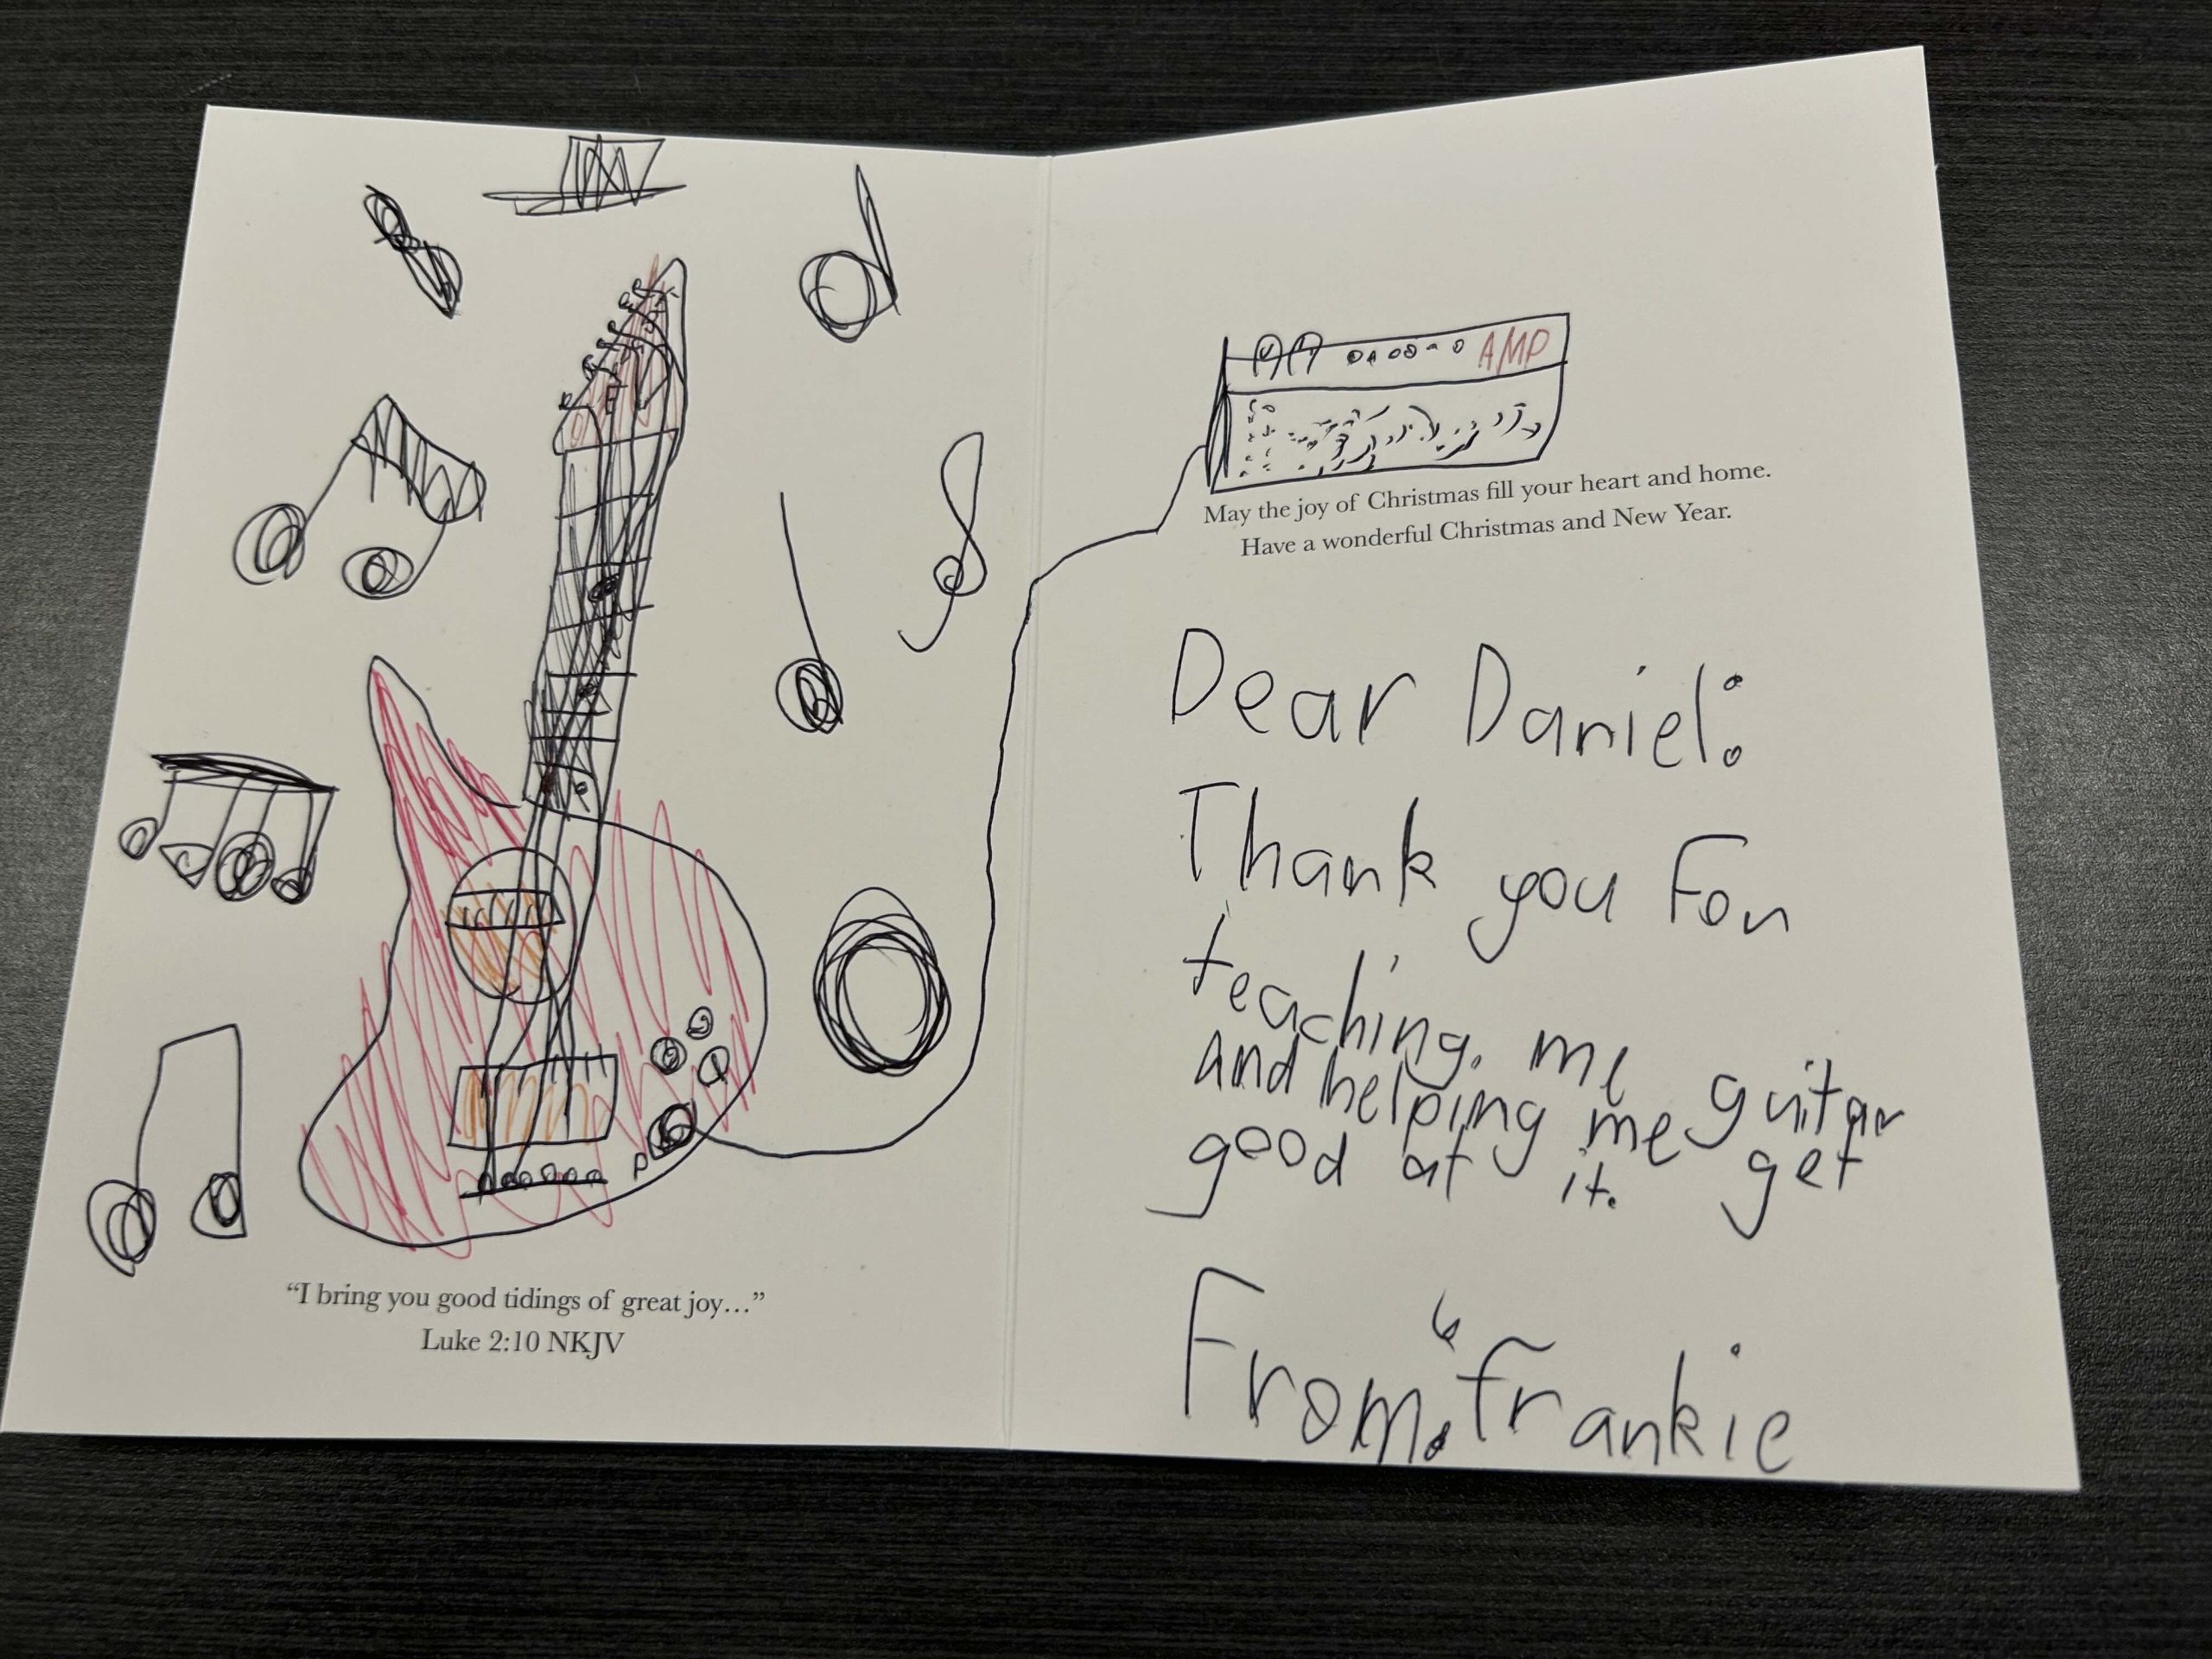 "I bring you good tidings of great joy..."
Luke 2:10 NKJV
AMP
May the joy of Christmas fill your heart and home.
Have a wonderful Christmas and New Year.
Dear Daniel:
Thank you For
teaching. me guitar
and helping me get
good at it.
From. Frankie